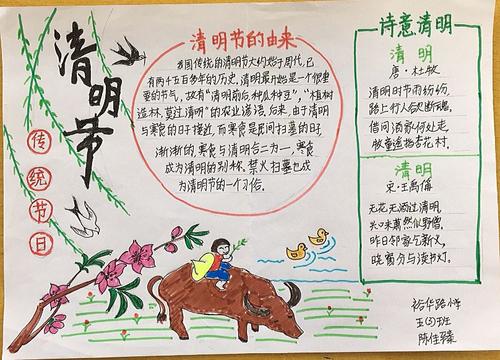 清明节
传统节日
清明节的由来
我国传统的清明节大约始于周代,已
有两千五百多年的历史,清明最开始是一个很重
要的节气,故有“清明前后,种瓜种豆”,“植树
造林,莫过清明”的农业谚语,后来,由于清明
与寒食的日子接近,而寒食是民间扫墓的日子,
渐渐的,寒食与清明合二为一,寒食
成为清明的别称,禁火扫墓也成
为清明节的一个习俗。
诗意清明
清明
唐·杜牧
清明时节雨纷纷,
路上行人欲断魂。
借问酒家何处走,
牧童遥指杏花村。
清明
宋·王禹偁
无花无酒过清明,
兴味萧然似野僧,
昨日邻家乞新火,
晓窗分与读书灯。
裕华路小学
五(5)班
陈佳